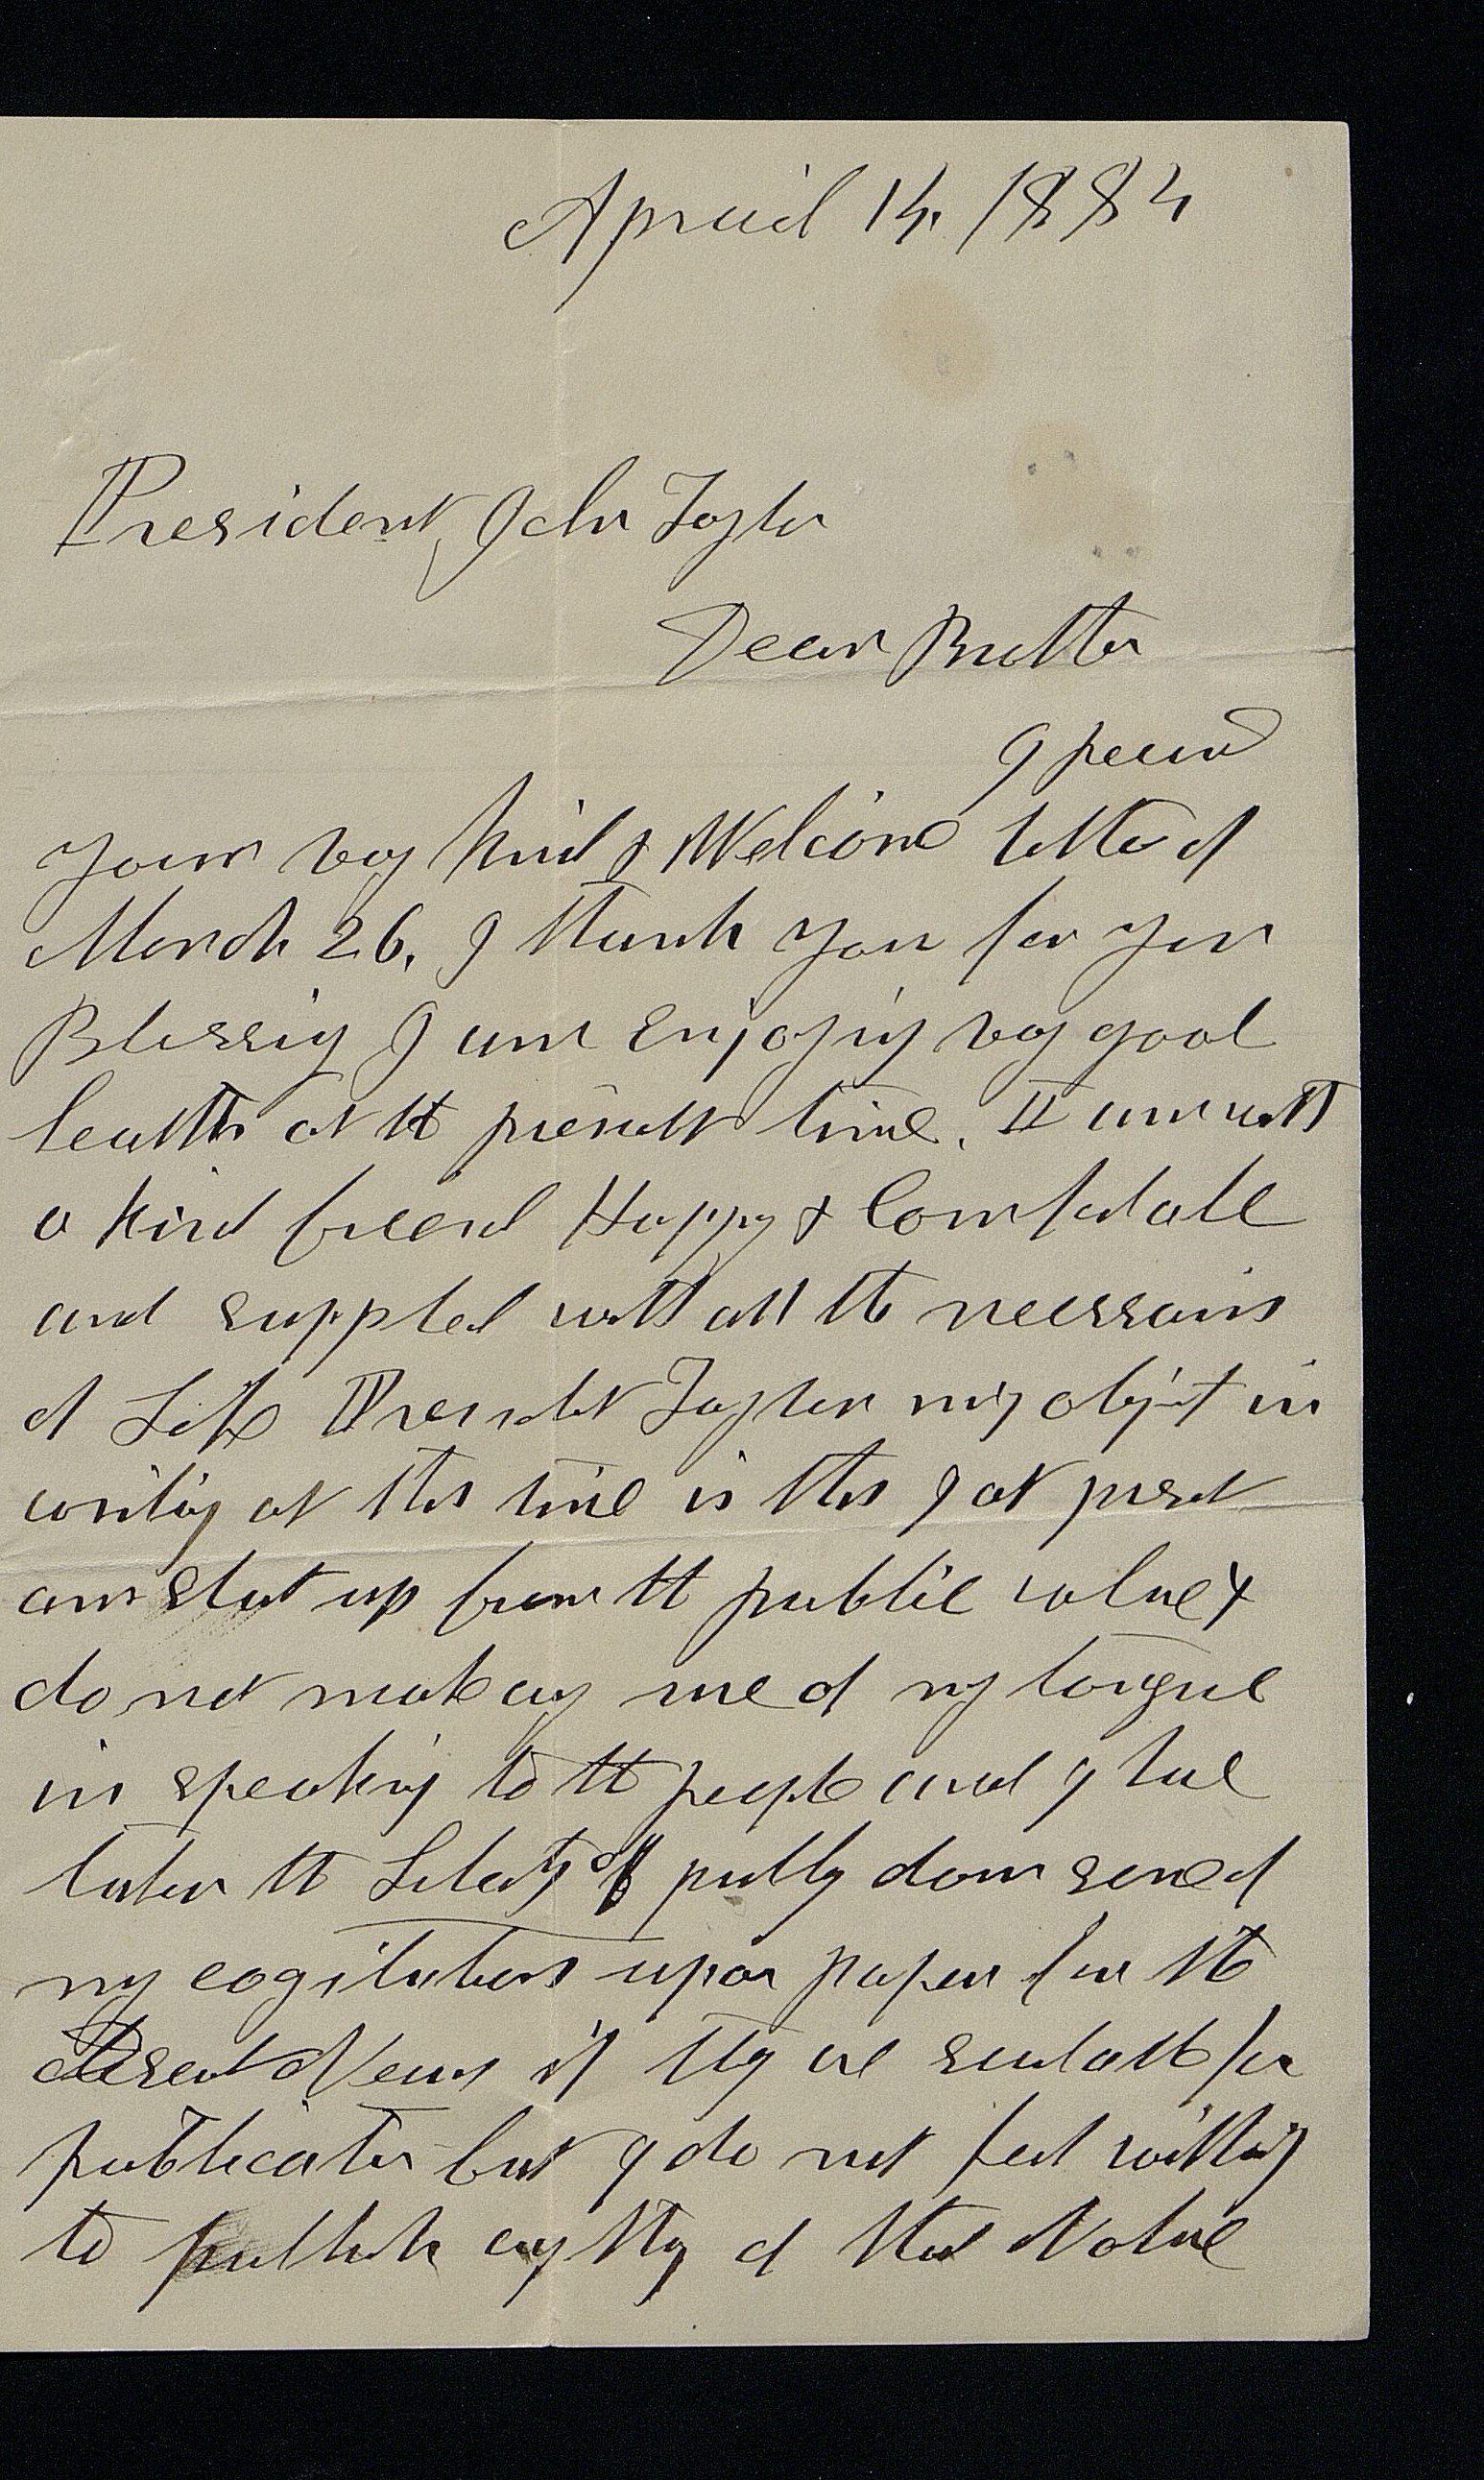 Apriil 14, 1884
President John Taylor
Dear Brother
I recievd
your very kind & Welcome letter of
March 26, I thank you for your
Blessing I am Enjoying very good
health at the present time. I am with
a kind friend Happy & Comfortable
and supplied with all the necessaris
of Life President Taylor my object in
writing at this time is this I at present
am shut up from the public valve &
do not make any use of my tongue
in speaking to the people and I have
taken the Liberty of putting down some of
my cogitations upon paper for the
Deseret News if they are suitable for
publication but I do not feel willing
to publish any thing of that Nature